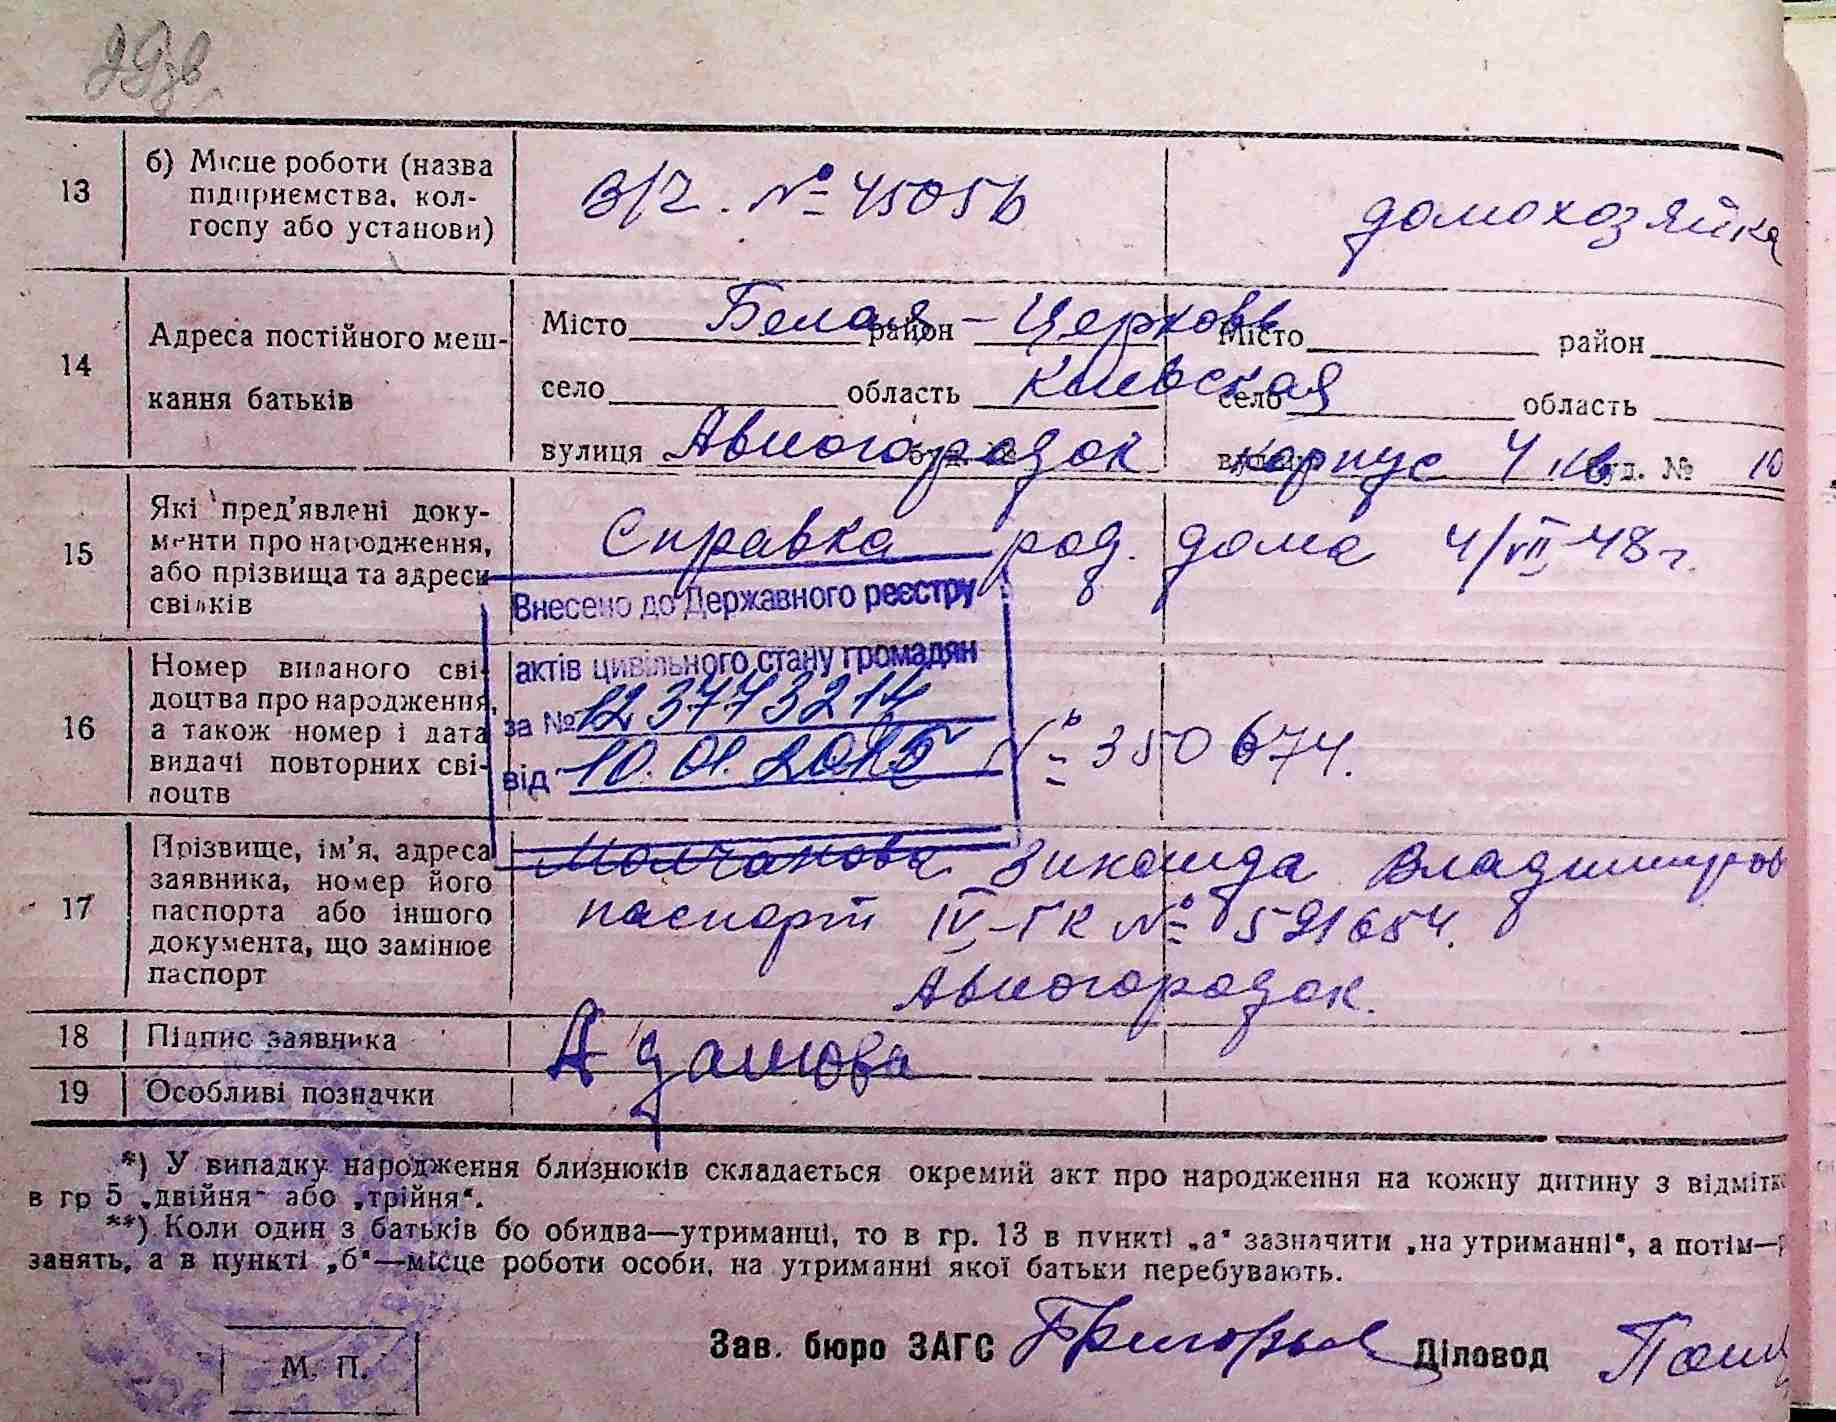 13
б) Місце роботи (назва
підприємства, кол-
госпу або установи)
В/Ч. № 45056
домохозяйка
14
Адреса постійного меш-
кання батьків
Місто Белая район - Церковь Місто район
село область Киевская село область
вулиця Авиогородок буд. № вулиця корпус 4 кв буд. № 10
15
Які пред’явлені доку-
менти про народження,
або прізвища та адреси
свідків
Справка род. дома 4/VII-48 г.
Внесено до Державного реєстру
актів цивільного стану громадян
за № 12 3773214
від 10.01.2015
16
Номер виданого сві-
доцтва про народження,
а також номер і дата
видачі повторних сві-
доцтв
№ 350674.
17
Прізвище, ім’я, адреса
заявника, номер його
паспорта або іншого
документа, що замінює
паспорт
Молчанова Зинаида Владимиров
паспорт IV-ГК № 591654.
Авиогородок.
18
Підпис заявника
Адамова
19
Особливі позначки
*) У випадку народження близнюків складається окремий акт про народження на кожну дитину з відмітк
в гр 5 „двійня“ або „трійня“.
**) Коли один з батьків бо обидва—утриманці, то в гр. 13 в пункті „а“ зазначити „на утриманні“, а потім—
занять, а в пункті „б“—місце роботи особи, на утриманні якої батьки перебувають.
Зав. бюро ЗАГС Діловод
М. П.